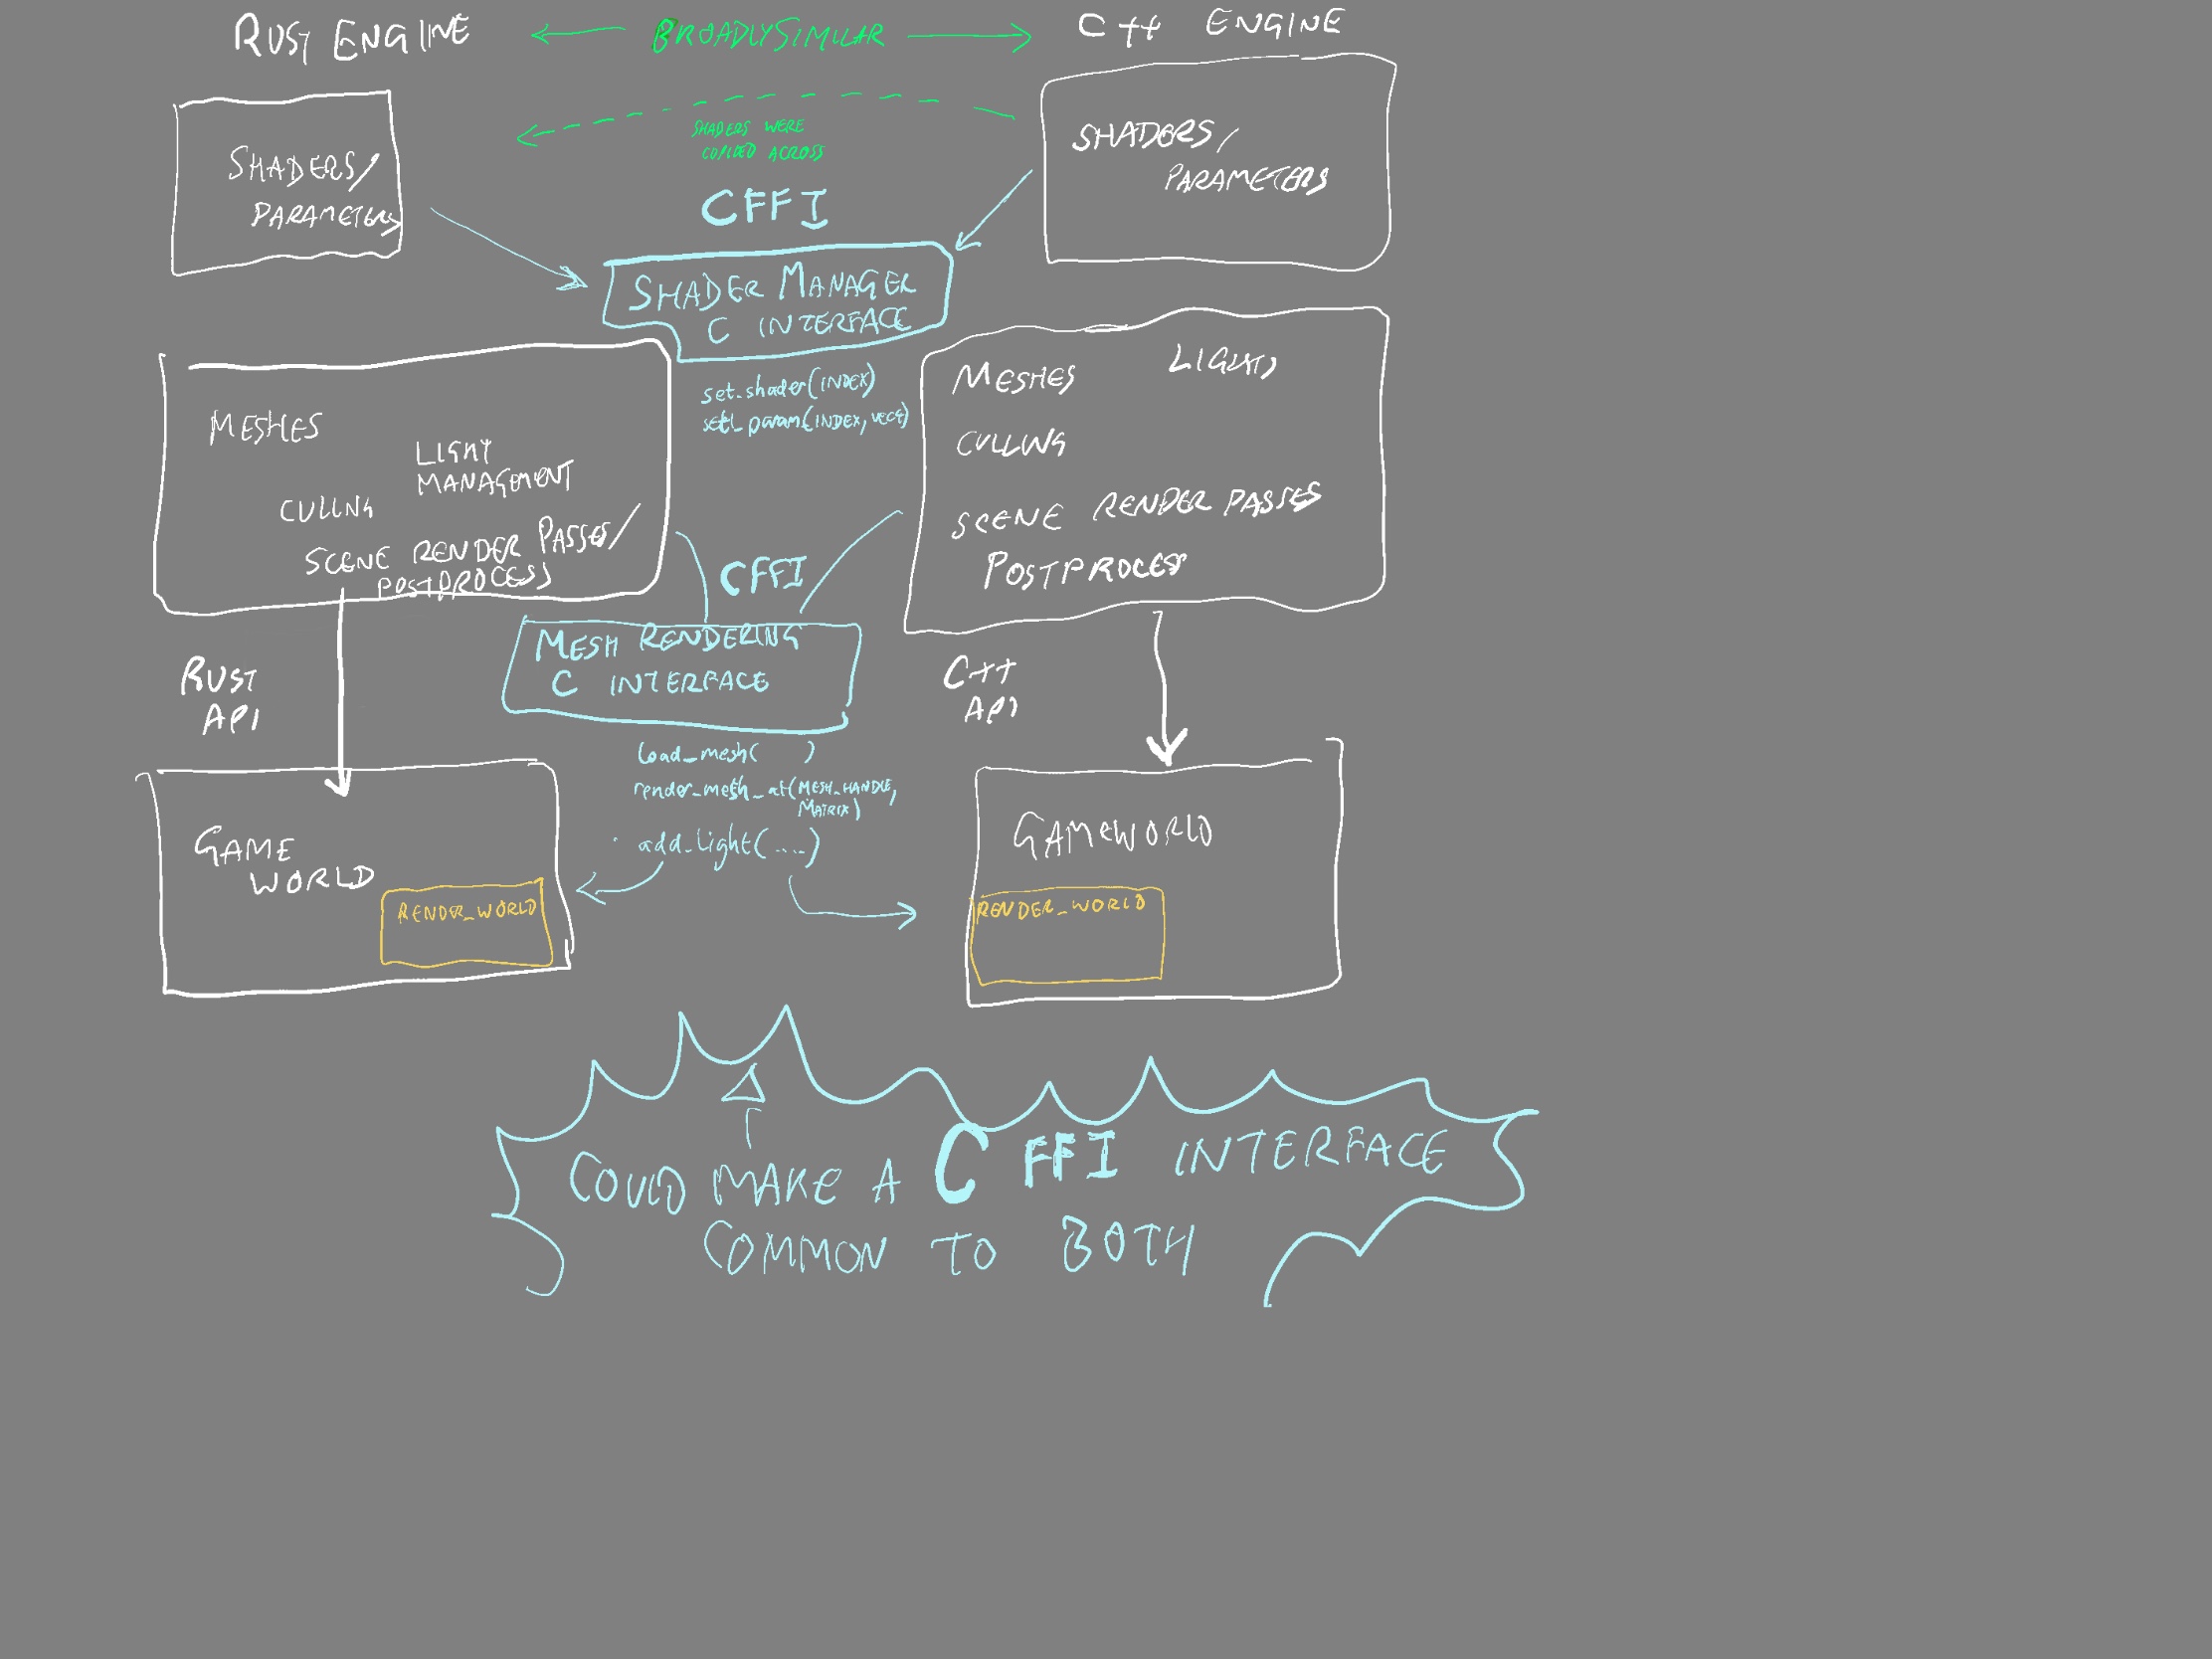 RUST ENGINE
BROADLY SIMILAR
C++ ENGINE
SHADERS WERE
COPIED ACROSS
SHADERS/
PARAMETERS
SHADERS/
PARAMETERS
CFFI
SHADER MANAGER
C INTERFACE
set_shader(INDEX)
MESHES
LIGHT
MANAGEMENT
CULLNG
SCENE RENDER PASSES/
POSTPROCESS
MESHES
LIGHTS
CULLING
SCENE RENDER PASSES
POSTPROCESS
CFFI
MESH RENDERING
C INTERFACE
RUST
API
C++
API
load_mesh( )
render_mesh_at(MESH_HANDLE,
MATRIX)
add_light(....)
GAME
WORLD
RENDER_WORLD
GAMEWORLD
RENDER_WORLD
COULD MAKE A C FFI INTERFACE
COMMON TO BOTH